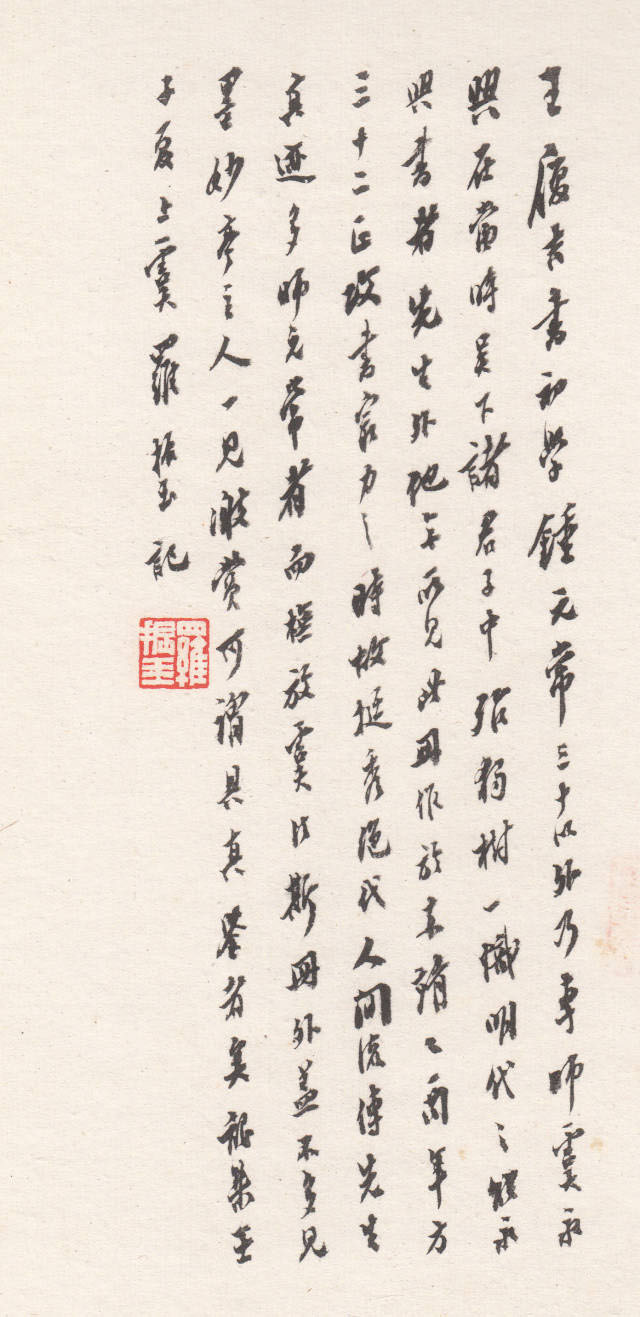 王履吉書初學鍾元常三十以外乃專師虞永
興在當時吳下諸君子中殆獨樹一幟明代之體永
興書者先生外他無所見此冊作於嘉靖乙酉年方
三十二正攻書家力之時故挺秀絕代人間流傳先生
真迹多師元常者而橅放虞法斯冊外蓋不多見
墨妙亭主人一見激賞可謂具真鑒者矣
子夏上虞羅振玉記
羅振玉